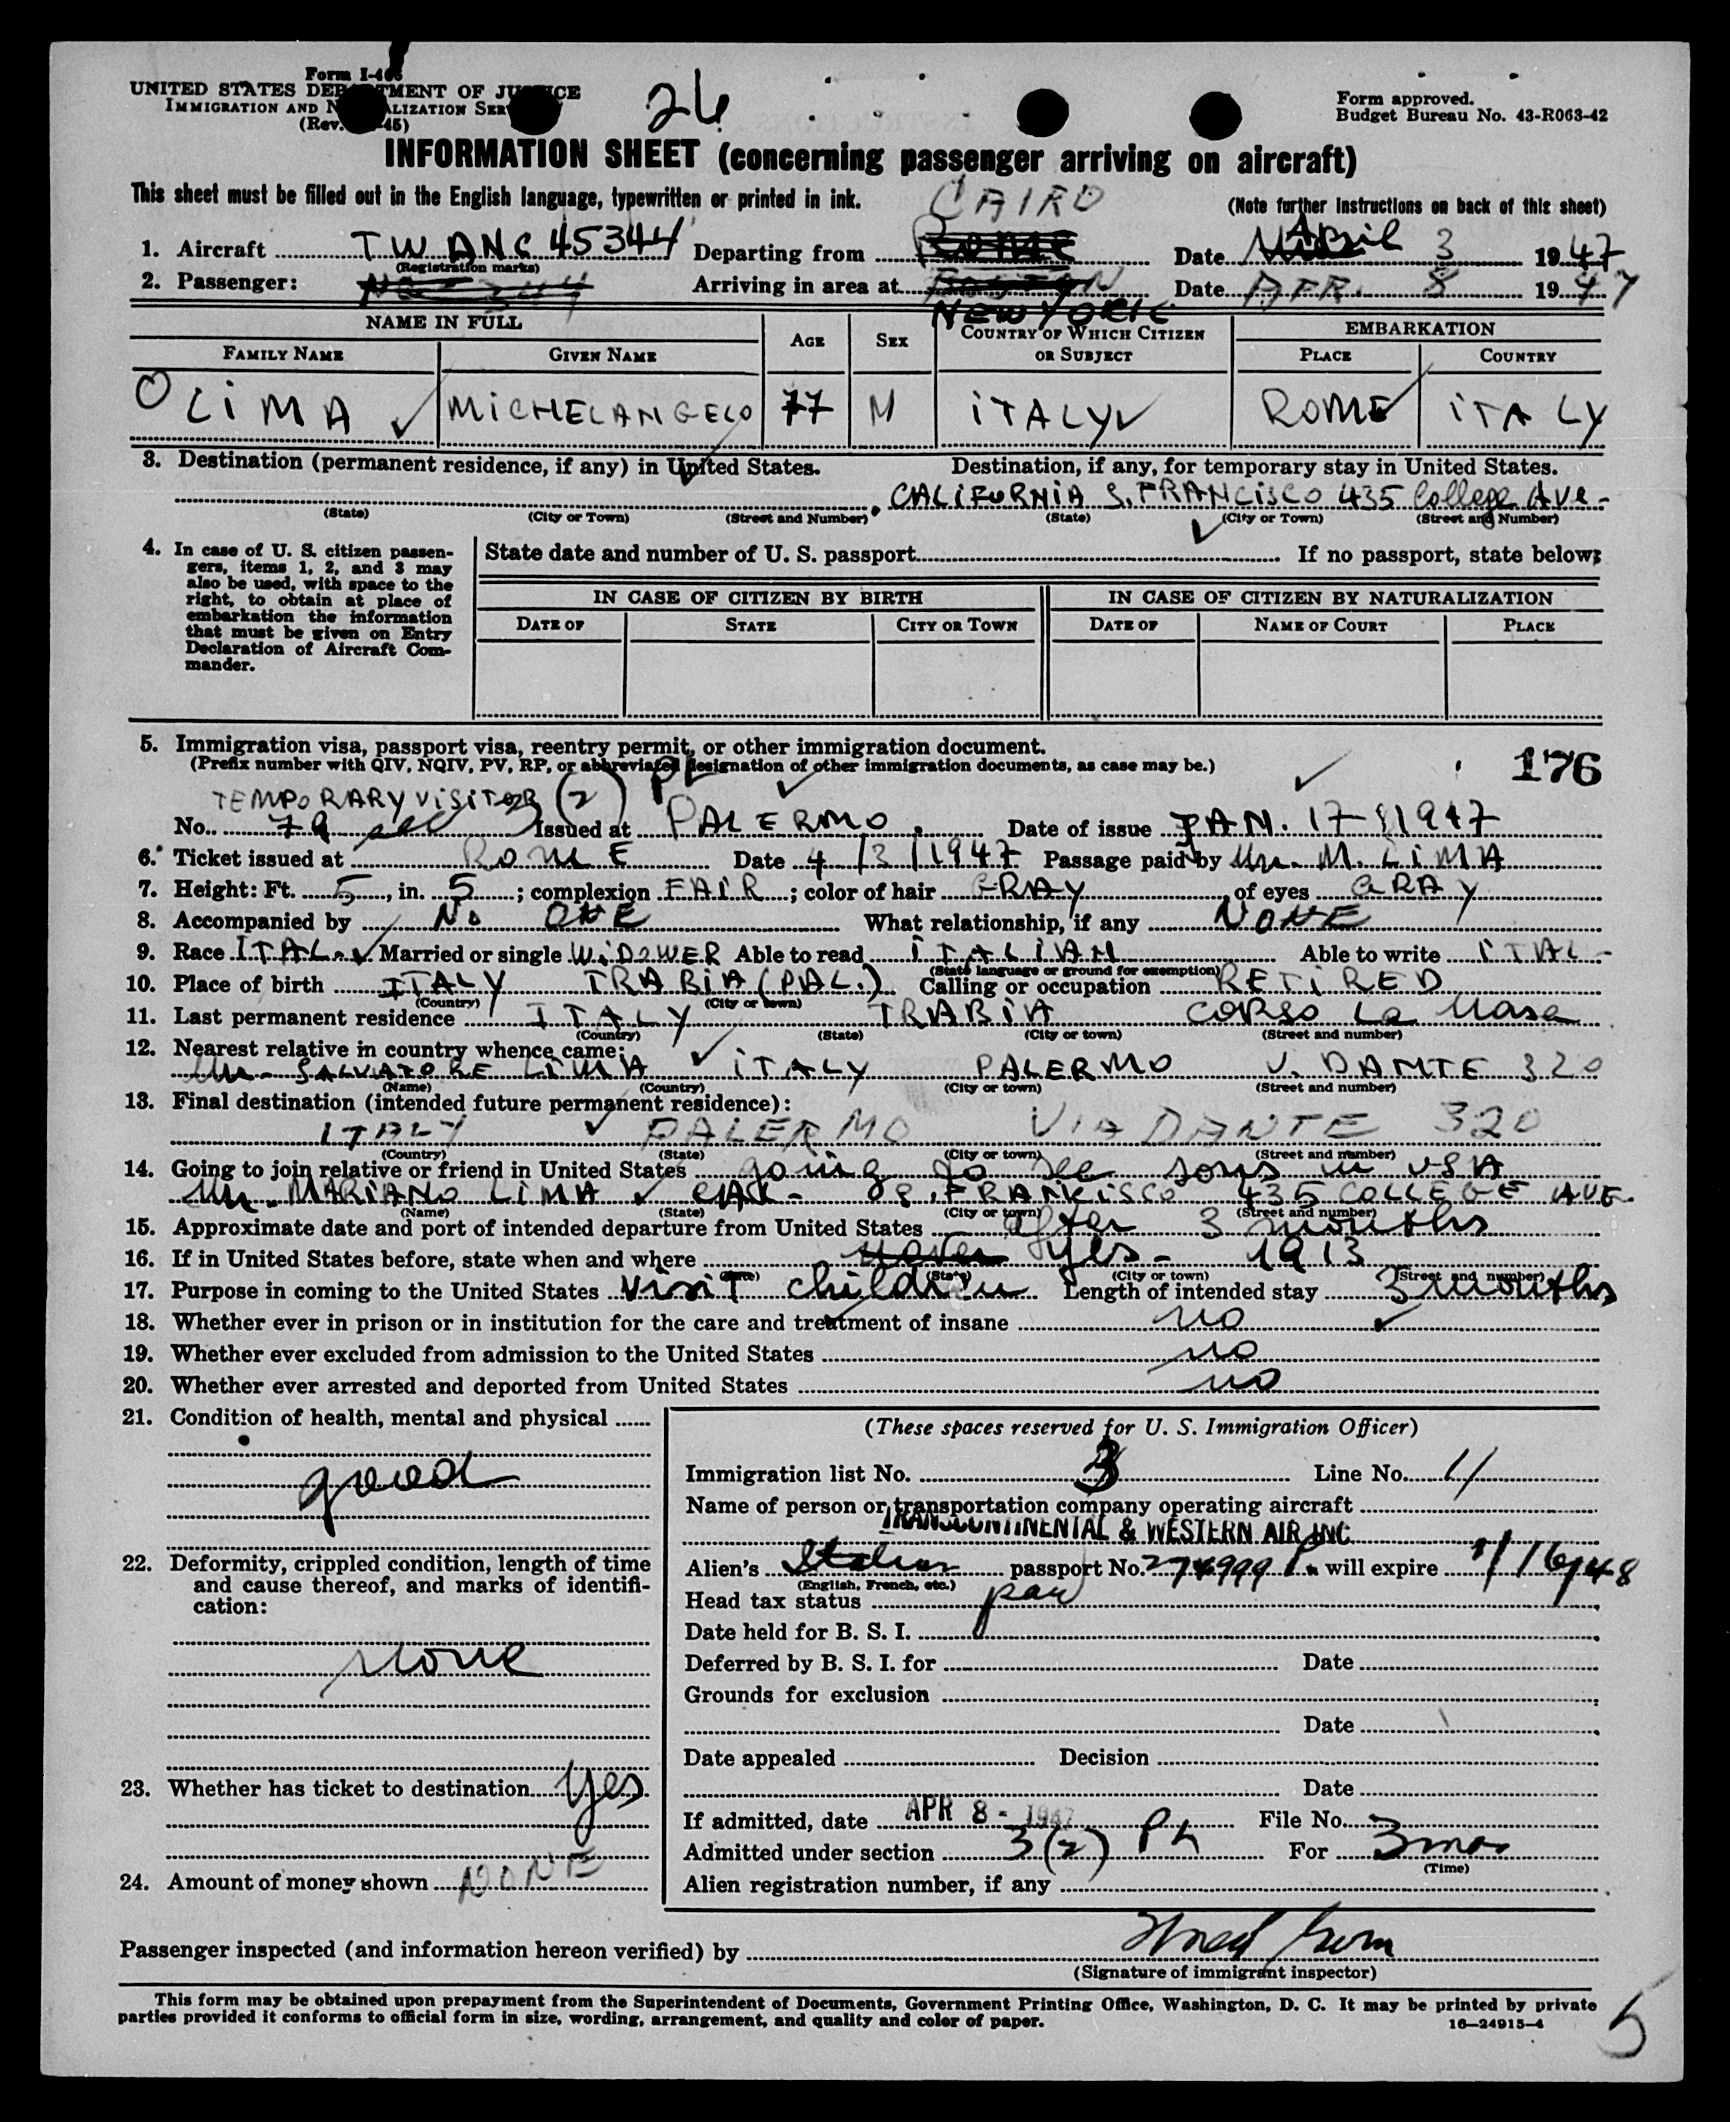 Form I-466
UNITED STATES DEPARTMENT OF JUSTICE
IMMIGRATION AND NATURALIZATION SERVICE
(Rev. -45)
26
Form approved.
Budget Bureau No. 43-R063-42
INFORMATION SHEET (concerning passenger arriving on aircraft)
This sheet must be filled out in the English language, typewritten or printed in ink.
(Note further instructions on back of this sheet)
CAIRO
1. Aircraft TWA NC 45344 Departing from ROME Date April 3 1947
(Registration marks)
2. Passenger: Arriving in area at BOSTON Date APR. 8 1947
NEW YORK
NAME IN FULL AGE SEX COUNTRY OF WHICH CITIZEN OR SUBJECT EMBARKATION
FAMILY NAME GIVEN NAME PLACE COUNTRY
LIMA MICHELANGELO 77 M ITALY ROME ITALY
3. Destination (permanent residence, if any) in United States. Destination, if any, for temporary stay in United States.
CALIFORNIA S. FRANCISCO 435 College Ave-
(State) (City or Town) (Street and Number) (State) (City or Town) (Street and Number)
4. In case of U. S. citizen passengers, items 1, 2, and 3 may also be used, with space to the right, to obtain at place of embarkation the information that must be given on Entry Declaration of Aircraft Commander.
State date and number of U. S. passport If no passport, state below:
IN CASE OF CITIZEN BY BIRTH IN CASE OF CITIZEN BY NATURALIZATION
DATE OF STATE CITY OR TOWN DATE OF NAME OF COURT PLACE
5. Immigration visa, passport visa, reentry permit, or other immigration document.
(Prefix number with QIV, NQIV, PV, RP, or abbreviated designation of other immigration documents, as case may be.)
176
TEMPORARY VISITOR 3(2)
No. 79 Issued at PALERMO Date of issue JAN. 17-1947
6. Ticket issued at ROME Date 4/3/1947 Passage paid by Mr. M. LIMA
7. Height: Ft. 5, in. 5; complexion FAIR; color of hair GRAY of eyes GRAY
8. Accompanied by No ONE What relationship, if any NONE
9. Race ITAL. Married or single WIDOWER Able to read ITALIAN Able to write ITAL-
(State language or ground for exemption)
10. Place of birth ITALY TRABIA (PAL.) Calling or occupation RETIRED
(Country) (City or town)
11. Last permanent residence ITALY TRABIA CORSO La Masa
(Country) (State) (City or town) (Street and number)
12. Nearest relative in country whence came:
Mr- SALVATORE LIMA ITALY PALERMO V. DANTE 320
(Name) (Country) (City or town) (Street and number)
13. Final destination (intended future permanent residence):
ITALY PALERMO VIA DANTE 320
(Country) (State) (City or town) (Street and number)
14. Going to join relative or friend in United States going to see sons in USA
Mr- MARIANO LIMA CAL- S. FRANCISCO 435 COLLEGE AVE.
(Name) (State) (City or town) (Street and number)
15. Approximate date and port of intended departure from United States after 3 months
16. If in United States before, state when and where never Yes- 1913
(Date) (State) (City or town) (Street and number)
17. Purpose in coming to the United States visit children Length of intended stay 3 months
18. Whether ever in prison or in institution for the care and treatment of insane no
19. Whether ever excluded from admission to the United States no
20. Whether ever arrested and deported from United States no
21. Condition of health, mental and physical
good
22. Deformity, crippled condition, length of time and cause thereof, and marks of identification:
none
23. Whether has ticket to destination yes
24. Amount of money shown NONE
(These spaces reserved for U. S. Immigration Officer)
Immigration list No. 3 Line No. 11
Name of person or transportation company operating aircraft
TRANSCONTINENTAL & WESTERN AIR INC
Alien's Italian passport No. 274999 P. will expire 1/16/48
(English, French, etc.)
Head tax status
Date held for B. S. I.
Deferred by B. S. I. for Date
Grounds for exclusion
Date
Date appealed Decision
Date
If admitted, date APR 8 - 1947 File No.
Admitted under section 3(2) For 3 mos
(Time)
Alien registration number, if any
Passenger inspected (and information hereon verified) by
(Signature of immigrant inspector)
This form may be obtained upon prepayment from the Superintendent of Documents, Government Printing Office, Washington, D. C. It may be printed by private
parties provided it conforms to official form in size, wording, arrangement, and quality and color of paper.
16—24915-4
5